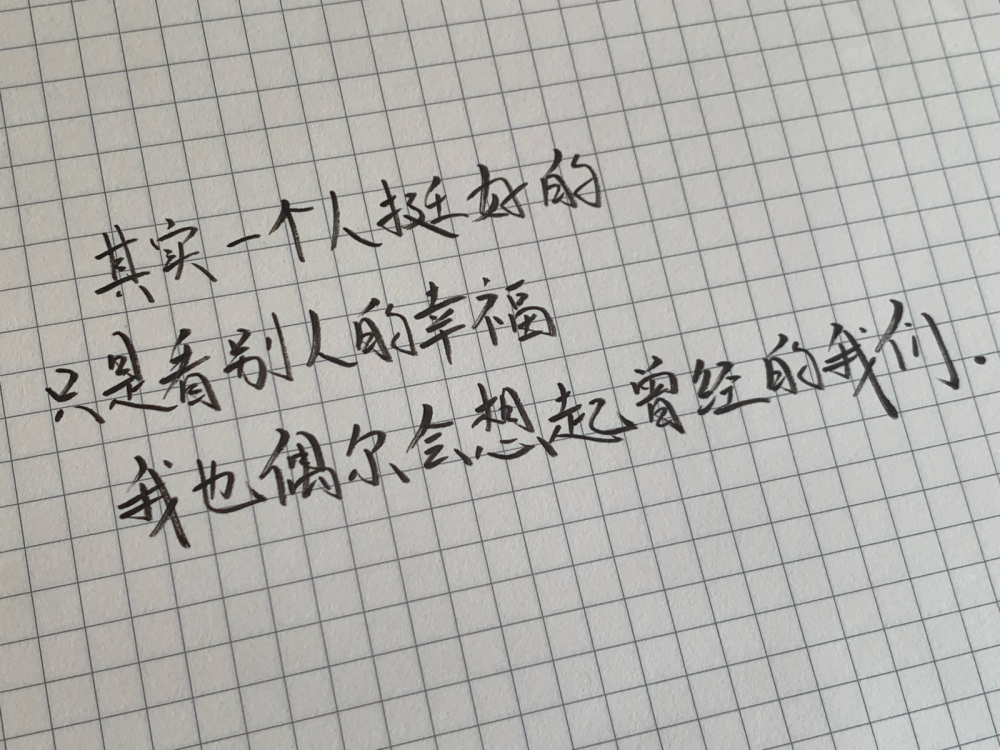 其实一个人挺好的
只是看别人的幸福
我也偶尔会想起曾经的我们.